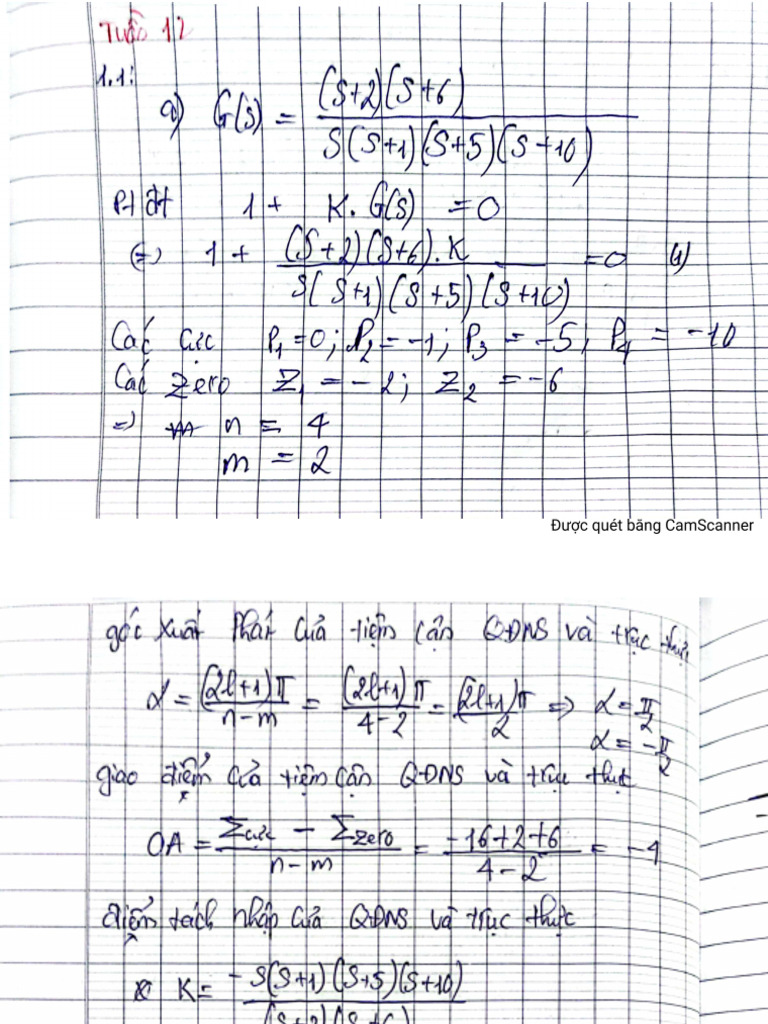 Tuần 12
1.1:
a) G(s) = (S+2)(S+6) / S(S+1)(S+5)(S+10)
PTĐT 1 + K.G(s) = 0
(=) 1 + (S+2)(S+6).K / S(S+1)(S+5)(S+10) = 0 (1)
Các cực P1 = 0; P2 = -1; P3 = -5; P4 = -10
Các Zero Z1 = -2; Z2 = -6
=) n = 4
m = 2
Được quét bằng CamScanner
góc xuất phát của tiệm cận QĐNS và trục thực
α = (2l+1)π / n-m = (2l+1)π / 4-2 = (2l+1)π / 2 => α = π/2
α = -π/2
giao điểm của tiệm cận QĐNS và trục thực
OA = Σcực - Σzero / n-m = -16+2+6 / 4-2 = -4
điểm tách nhập của QĐNS và trục thực
K = -S(S+1)(S+5)(S+10) / (S+2)(S+6)